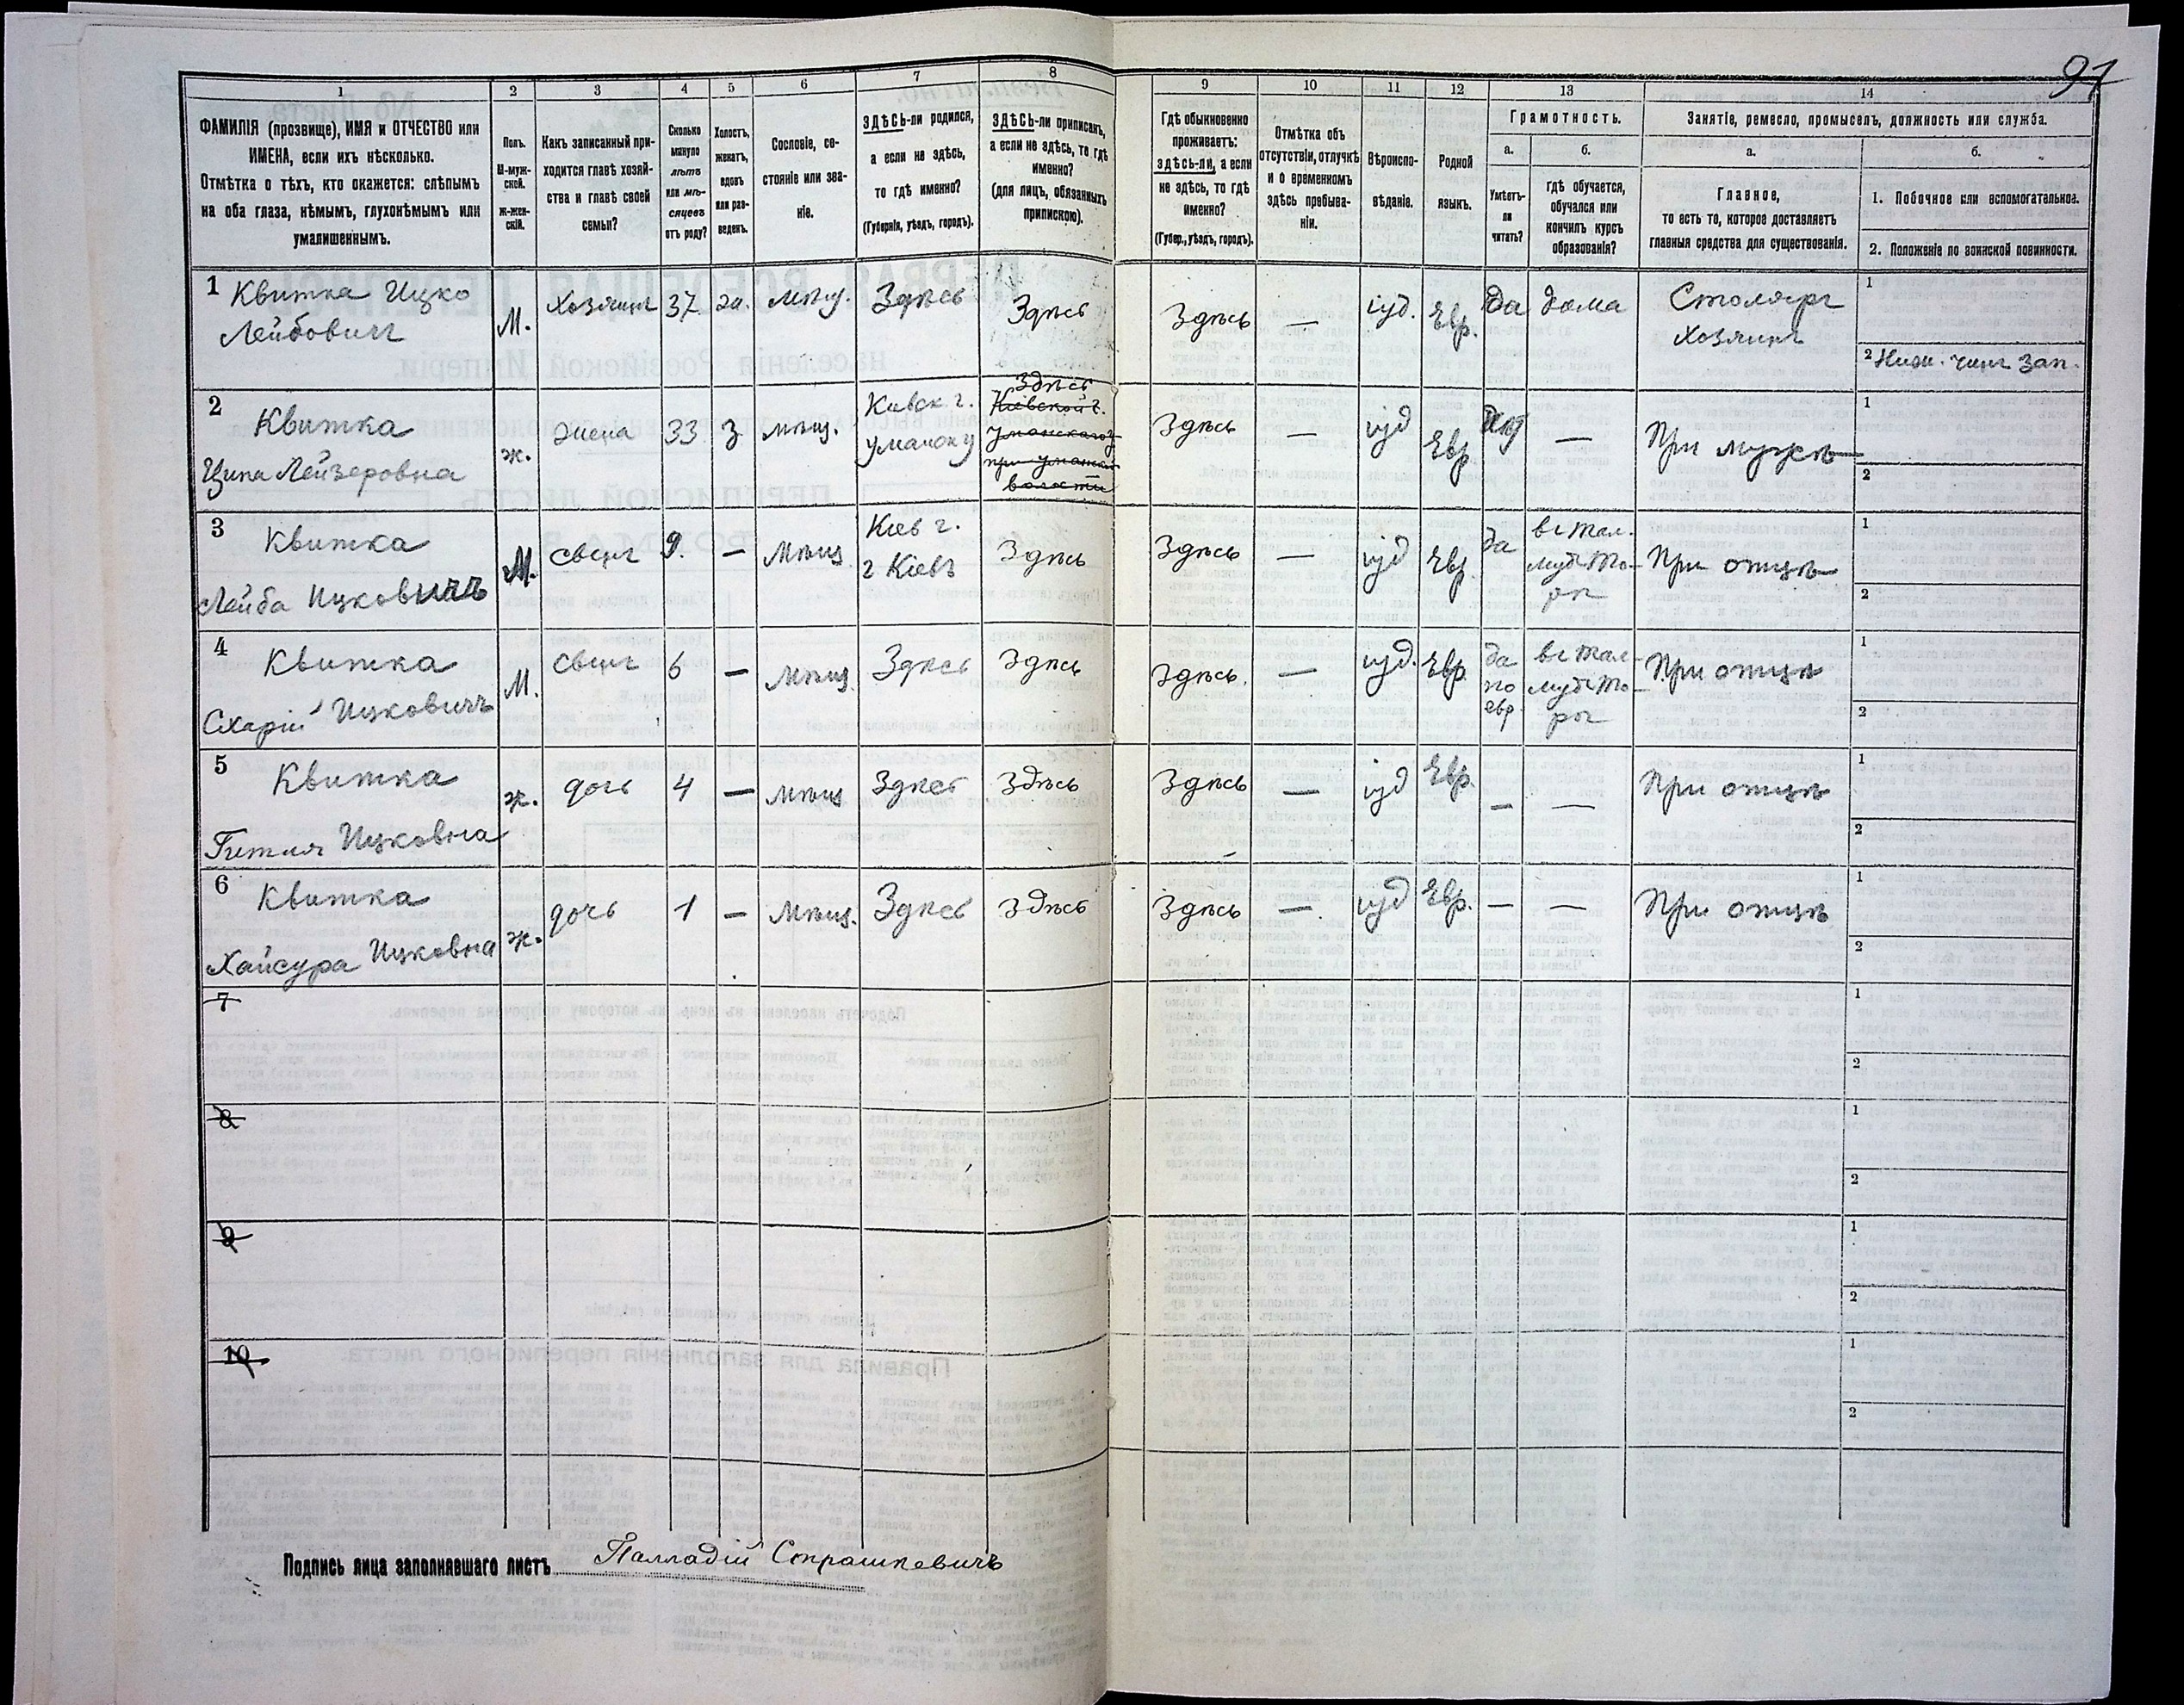 91
1 2 3 4 5 6 7 8 9 10 11 12 13 14
ФАМИЛІЯ (прозвище), ИМЯ и ОТЧЕСТВО или
ИМЕНА, если ихъ нѣсколько.
Отмѣтка о тѣхъ, кто окажется: слѣпымъ
на оба глаза, нѣмымъ, глухонѣмымъ или
умалишеннымъ.
Полъ.
М-муж-
ской.
ж-жен-
скій.
Какъ записанный при-
ходится главѣ хозяй-
ства и главѣ своей
семьи?
Сколько
минуло
лѣтъ
или мѣ-
сяцевъ
отъ роду?
Холостъ,
женатъ,
вдовъ
или раз-
веденъ.
Сословіе, со-
стояніе или зва-
ніе.
ЗДѢСЬ-ли родился,
а если не здѣсь,
то гдѣ именно?
(Губернія, уѣздъ, городъ).
ЗДѢСЬ-ли приписанъ,
а если не здѣсь, то гдѣ
именно?
(для лицъ, обязанныхъ
припискою).
Гдѣ обыкновенно
проживаетъ:
здѣсь-ли, а если
не здѣсь, то гдѣ
именно?
(Губер., уѣздъ, городъ).
Отмѣтка объ
отсутствіи, отлучкѣ
и о временномъ
здѣсь пребыва-
ніи.
Вѣроиспо-
вѣданіе.
Родной
языкъ.
Грамотность.
а.
Умѣетъ-
ли
читать?
б.
гдѣ обучается,
обучался или
кончилъ курсъ
образованія?
Занятіе, ремесло, промыселъ, должность или служба.
а.
Главное,
то есть то, которое доставляетъ
главныя средства для существованія.
б.
1. Побочное или вспомогательное.
2. Положеніе по воинской повинности.
1 Квитка Ицко
Лейбовичъ
М. Хозяинъ 37 жа. мѣщ. Здѣсь Здѣсь Здѣсь — іуд. Евр. да дома Столяръ
Хозяинъ
1
2 Ниж. чинъ зап.
2 Квитка
Ципа Лейзеровна
ж. жена 33 з мѣщ. Киевск г.
уманск у
Здѣсь
Кіевской г.
уманскаго у
при уманск
волости
Здѣсь — іуд Евр — При мужѣ
1
2
3 Квитка
Лейба Ицковичъ
М. сынъ 9. — Мѣщ Кіев г.
г Кіевъ
Здѣсь Здѣсь — іуд Евр да въ тал-
мудъ То-
рѣ
При отцѣ
1
2
4 Квитка
Схарій Ицковичъ
М. сынъ 6 — Мѣщ. Здѣсь Здѣсь Здѣсь. — іуд. Евр. да
по
евр.
въ тал-
мудъ То-
рѣ
При отцѣ
1
2
5 Квитка
Гитля Ицковна
ж. дочь 4 — мѣщ Здѣсь Здѣсь Здѣсь — іуд Евр. — — При отцѣ
1
2
6 Квитка
Хайсура Ицковна
ж. дочь 1 — Мѣщ. Здѣсь Здѣсь Здѣсь — іуд Евр. — — При отцѣ
1
2
7
1
2
8
1
2
9
1
2
10
1
2
Подпись лица заполнявшаго листъ Палладій Страшкевичъ